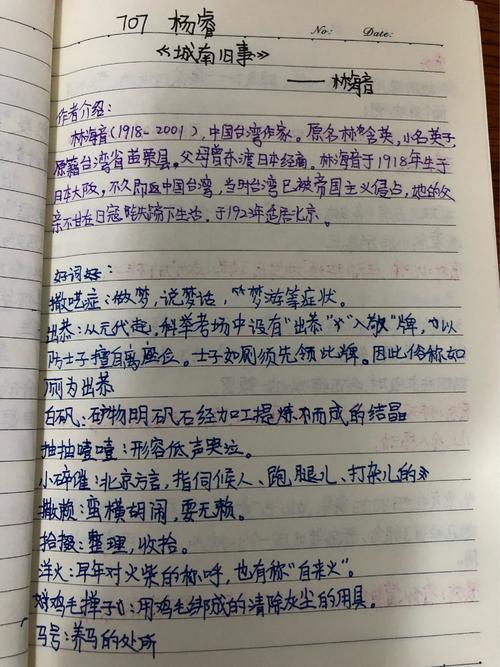 707 杨睿
No: Date:
《城南旧事》
——林海音
作者介绍:
林海音(1918-2001),中国台湾作家。原名林含英,小名英子,
原籍台湾省苗栗县。父母曾东渡日本经商。林海音于1918年生于
日本大阪,不久即返中国台湾,当时台湾已被帝国主义侵占,她的父
亲不甘在日寇铁蹄下生活,于1923年迁居北京。
好词好:
撒呓症:做梦,说梦话,梦游等症状。
出恭:从元代起,科举考场中设有"出恭""入敬"牌,以
防士子擅自离座位。士子如厕须先领此牌。因此俗称如
厕为出恭
白矾:矿物明矾石经加工提炼而成的结晶
抽抽噎噎:形容低声哭泣。
小碎催:北京方言,指伺候人、跑腿儿、打杂儿的
撒赖:蛮横胡闹,耍无赖。
拾掇:整理,收拾。
洋火:早年对火柴的称呼,也有称"自来火"。
鸡毛掸子:用鸡毛绑成的清除灰尘的用具。
马号:养马的处所